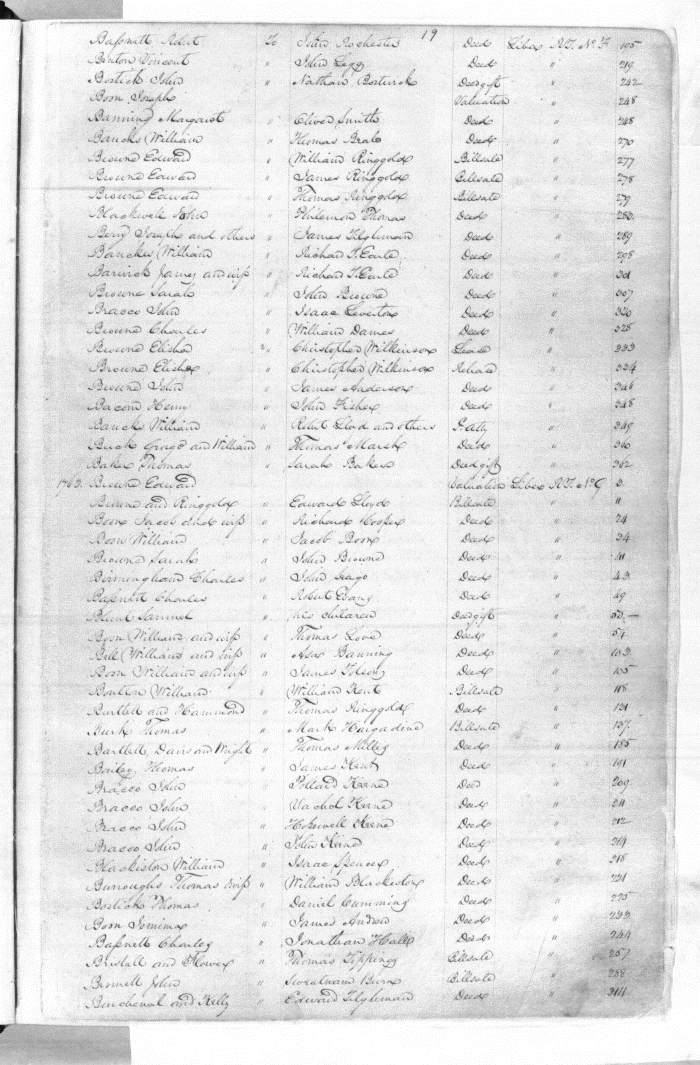 19
Bassnett Robt To John Rochester Deed Liber R.T. No F 195
Benton Vincent " John Legg Deed " 219
Bostick John " Nathan Bostwick Deedgift " 242
Boon Joseph Valuation " 248
Banning Margaret " Oliver Smith Deed " 248
Bancks William " Thomas Deed " 270
Browne Edward " William Ringgold Billsale " 277
Browne Edward " James Ringgold Billsale " 278
Browne Edward " Thomas Ringgold Billsale " 279
Blackwell John " Philemon Thomas Deed " 283
Berry Joseph and others " James Tilghman Deed " 289
Banckes William " Richard T. Earle Deed " 298
Barwick James and wife " Richard T. Earle Deed " 301
Browne Sarah " John Browne Deed " 307
Bracco John " Isaac Leverton Deed " 320
Browne Charles " William Dames Deed " 328
Browne Elisha " Christopher Wilkinson Lease " 333
Browne Elisha " Christopher Wilkinson Release " 334
Browne John " James Anderson Deed " 346
Bacon Henry " John Fisher Deed " 348
Banck William " Robert Lloyd and others P. Atty " 349
Buck George and William " Thomas Marsh Deed " 360
Baker Thomas " Sarah Baker Deedgift " 362
1763. Browne Edward Valuation Liber R.T. No G 3
Browne and Ringgold " Edward Lloyd Billsale " 11
Boon Jacob and wife " Richard Cooper Deed " 24
Boon William " Jacob Boon Deed " 34
Browne Sarah " John Browne Deed " 41
Birmingham Charles " John Deed " 43
Bassnett Charles " Robert Evans Deed " 49
Blunt Samuel " his children Deedgift " 53
Boon William and wife " Thomas Love Deed " 54
Bell William and wife " Asa Banning Deed " 103
Boon William and wife " James Tolson Deed " 105
Boulton William " William Kent Billsale " 118
Bartlett and Hammond " Thomas Ringgold Deed " 131
Burk Thomas " Mark Hargadine Billsale " 137
Bartlett, Davis and Wright " Thomas Deed " 185
Bailey Thomas " James Kent Deed " 191
Bracco John " Pollard Keene Deed " 209
Bracco John " Vachel Keene Deed " 211
Bracco John " Hopewell Keene Deed " 212
Bracco John " John Keene Deed " 214
Blackiston William " Isaac Spencer Deed " 218
Burroughs Thomas wife " William Blackeston Deed " 221
Bostick Thomas " Daniel Cumming Deed " 225
Boon Jemima " James Andrew Deed " 233
Bassnett Charles " Jonathan Hall Deed " 244
Bristall and Flower " Thomas Tipping Billsale " 257
Bennett John " Sweatnam Burn Billsale " 288
Burchenal and Kelly " Edward Tilghman Deed "